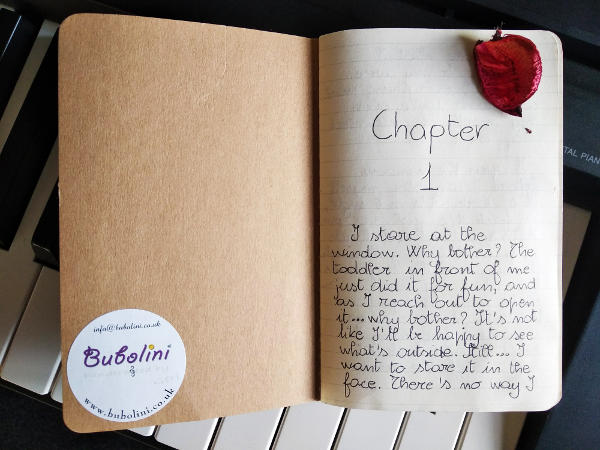 info@bubolini.co.uk
Bubolini
www.bubolini.co.uk
TAL PIAN
Chapter
1
I stare at the
window. Why bother? The
toddler in front of me
just did it for fun, and
as I reach out to open
it... why bother? It's not
like I'll be happy to see
what's outside. Still... I
want to stare it in the
face. There's no way I